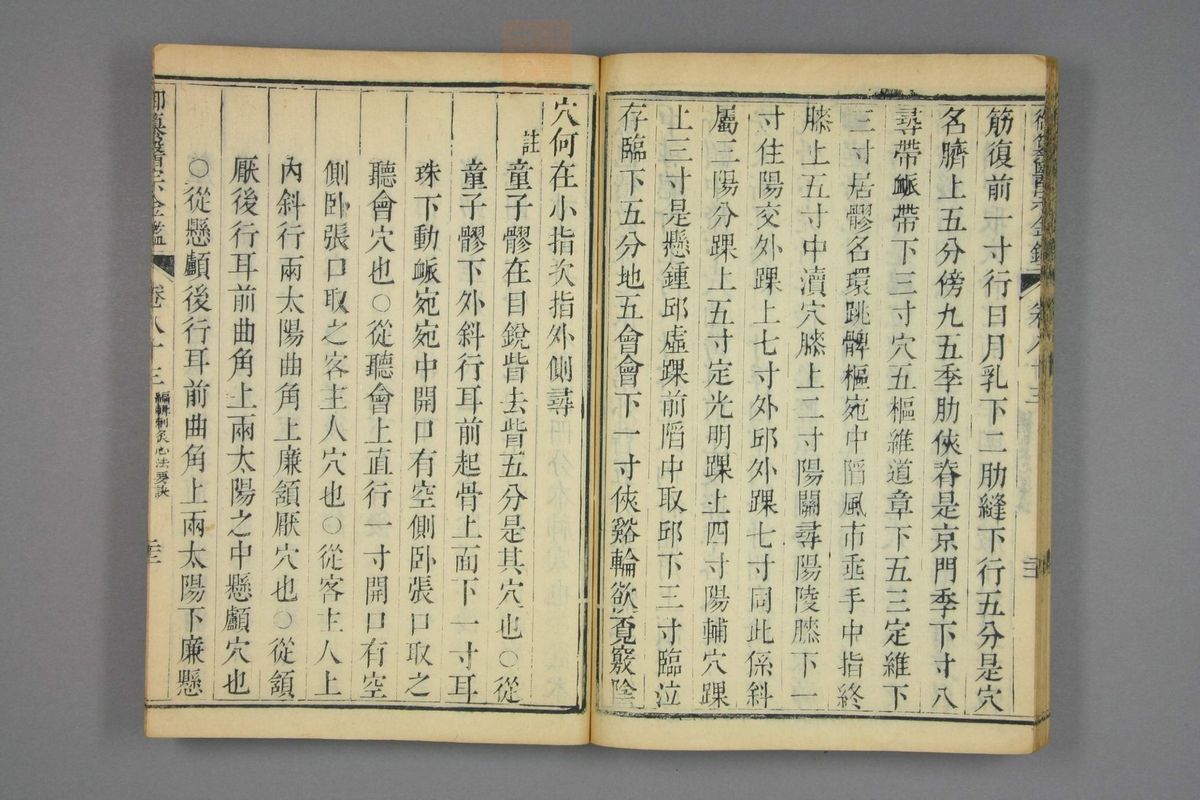 御纂醫宗金鑑 卷八十三
筋復前一寸行日月乳下二肋縫下行五分是穴
名臍上五分傍九五季肋俠脊是京門季下寸八
尋帶脈帶下三寸穴五樞維道章下五三定維下
三寸居髎名環跳髀樞宛中陷風市垂手中指終
膝上五寸中瀆穴膝上二寸陽關尋陽陵膝下一
寸住陽交外踝上七寸外邱外踝七寸同此係斜
屬三陽分踝上五寸定光明踝上四寸陽輔穴踝
上三寸是懸鍾邱虛踝前陷中取邱下三寸臨泣
存臨下五分地五會會下一寸俠谿輪欲覓竅陰
穴何在小指次指外側尋
註 童子髎在目銳眥去眥五分是其穴也○從
童子髎下外斜行耳前起骨上面下一寸耳
珠下動脈宛宛中開口有空側卧張口取之
聽會穴也○從聽會上直行一寸開口有空
側卧張口取之客主人穴也○從客主人上
內斜行兩太陽曲角上廉頷厭穴也○從頷
厭後行耳前曲角上兩太陽之中懸顱穴也
○從懸顱後行耳前曲角上兩太陽下廉懸
御纂醫宗金鑑 卷八十三 編輯刺灸心法要訣 二三